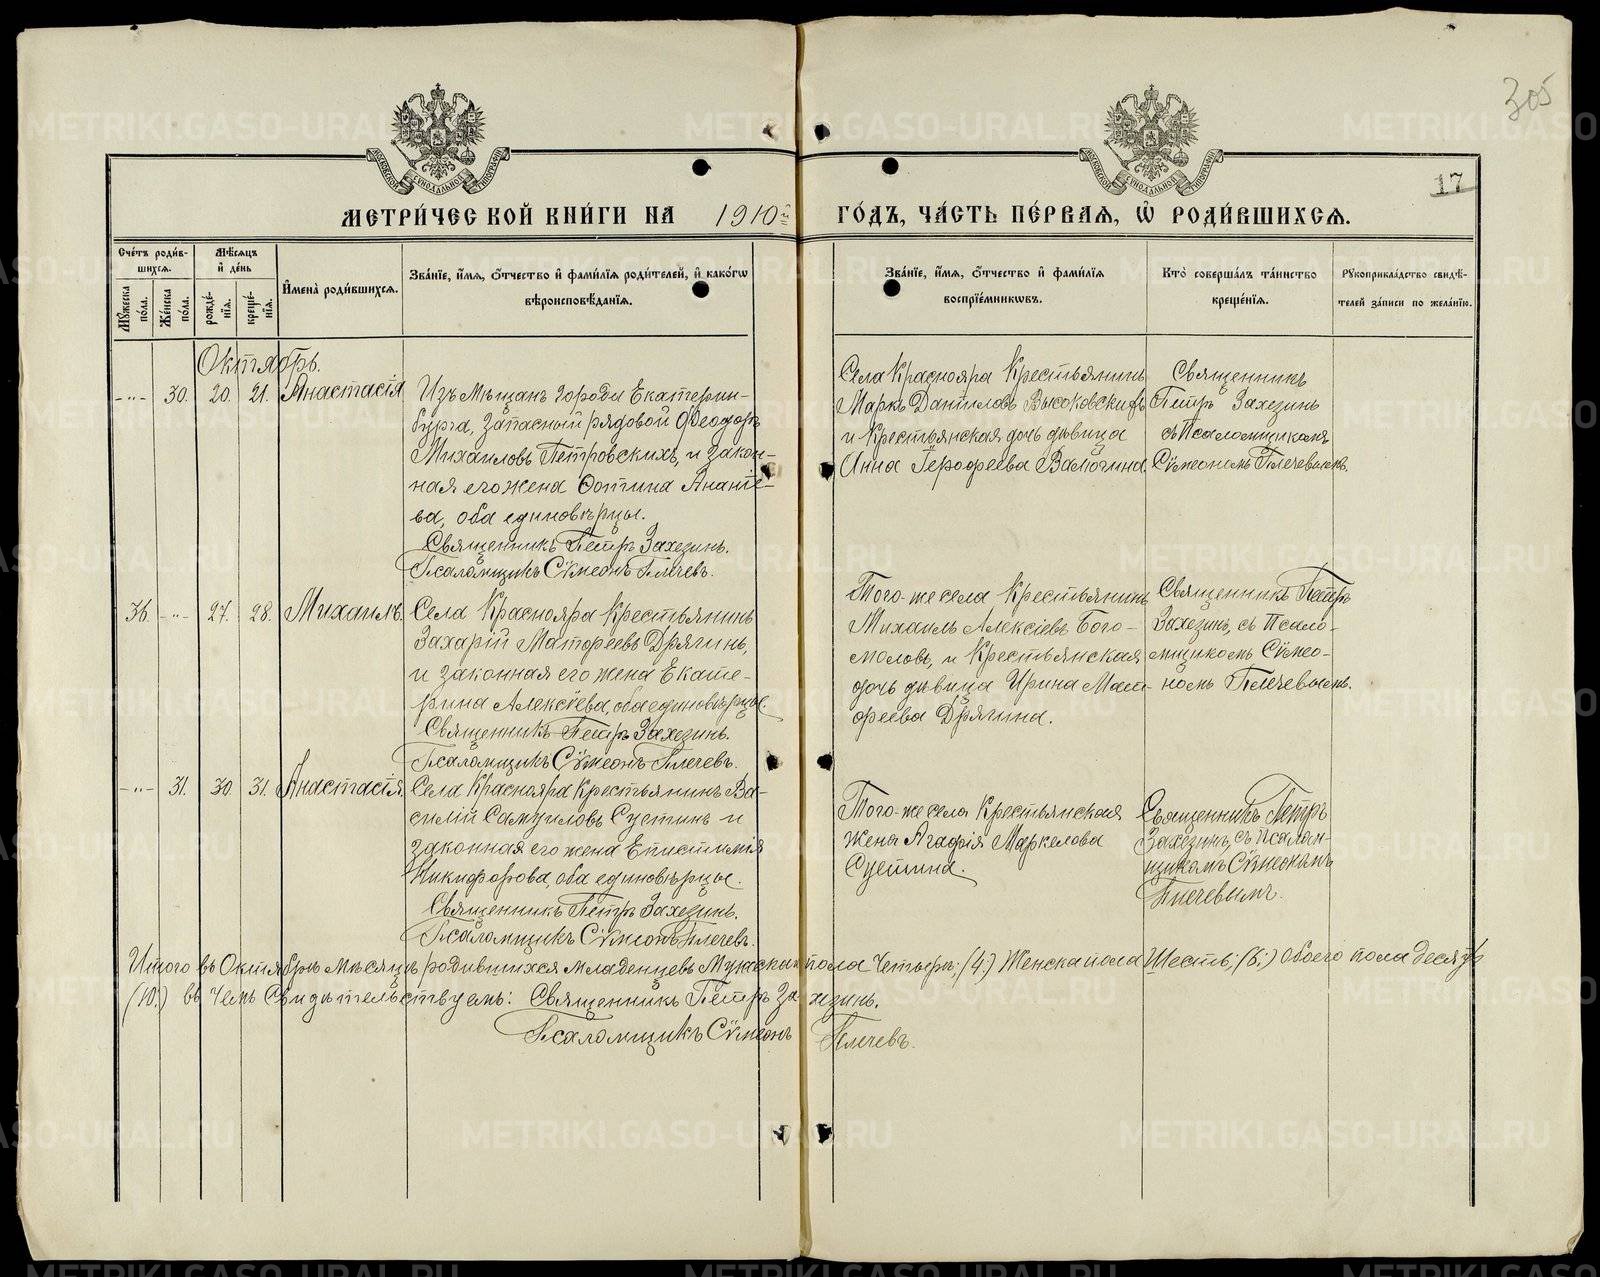 305
17
МОСКОВСКОЙ СѴНОДАЛЬНОЙ ТИПОГРАФІИ
МОСКОВСКОЙ СѴНОДАЛЬНОЙ ТИПОГРАФІИ
МЕТРИ́ЧЕСКОЙ КНИ́ГИ НА 1910й
ГО́ДЪ, ЧА́СТЬ ПЕ́РВАЯ, Ѡ РОДИ́ВШИХСѦ.
Сче́тъ роди́вшихсѧ.
Мꙋ́жеска по́ла.
Же́нска по́ла.
Мѣ́сѧцъ и҆ де́нь
рожде́нїѧ.
креще́нїѧ.
И҆мена̀ роди́вшихсѧ.
Зва́нїе, и҆́мѧ, ѻ҆́тчество и҆ фами́лїѧ роди́телей, и҆ како́гѡ вѣроисповѣ́данїѧ.
Зва́нїе, и҆́мѧ, ѻ҆́тчество и҆ фами́лїѧ воспрїе́мникѡвъ.
Кто̀ соверша́лъ та́инство креще́нїѧ.
Рꙋкоприкла́дство свидѣ́телей за́писи по жела́нїю.
Октябрь.
-"- 30. 20. 21. Анастасія
Изъ Мѣщанъ города Екатерин-
бурга, Запасный рядовой Ѳеодоръ
Михаиловъ Петровскихъ, и закон-
ная его жена Фотина Ананіе-
ва, оба единовѣрцы.
Священникъ Петръ Захезинъ.
Псаломщикъ Сѷмеонъ Плечевъ.
Села Краснояра Крестьянинъ
Маркъ Даниловъ Высоковскихъ
и Крестьянская дочь дѣвица
Анна Іерофеева Валюгина
Священникъ
Петръ Захезинъ
съ Псаломщикомъ
Сѷмеономъ Плечевымъ.
36. -"- 27. 28. Михаилъ.
Села Краснояра Крестьянинъ
Захарій Матфеевъ Дрягинъ,
и законная его жена Екате-
рина Алексіева, оба единовѣрцы.
Священникъ Петръ Захезинъ.
Псаломщикъ Сѷмеонъ Плечевъ.
Того-же села Крестьянинъ
Михаилъ Алексіевъ Бого-
моловъ, и Крестьянская
дочь дѣвица Ирина Мат-
феева Дрягина.
Священникъ Петръ
Захезинъ, съ Псало-
мщикомъ Сѷмео-
номъ Плечевымъ.
-"- 31. 30. 31. Анастасія.
Села Краснояра Крестьянинъ Ва-
силій Самуиловъ Суетинъ и
законная его жена Епистимія
Никифорова, оба единовѣрцы.
Священникъ Петръ Захезинъ.
Псаломщикъ Сѷмеонъ Плечевъ.
Того-же села Крестьянская
жена Агафія Маркелова
Суетина.
Священникъ Петръ
Захезинъ, съ Псалом-
щикомъ Сѷмеономъ
Плечевымъ.
Итого въ Октябрѣ Мѣсяцѣ родившихся младенцевъ Мужска пола Четыре: (4.) Женска пола Шесть; (6.) Обоего пола десять
(10.) въ чемъ Свидѣтельствуемъ: Священникъ Петръ Захезинъ.
Псаломщикъ Сѷмеонъ Плечевъ.
METRIKI.GASO-URAL.RU